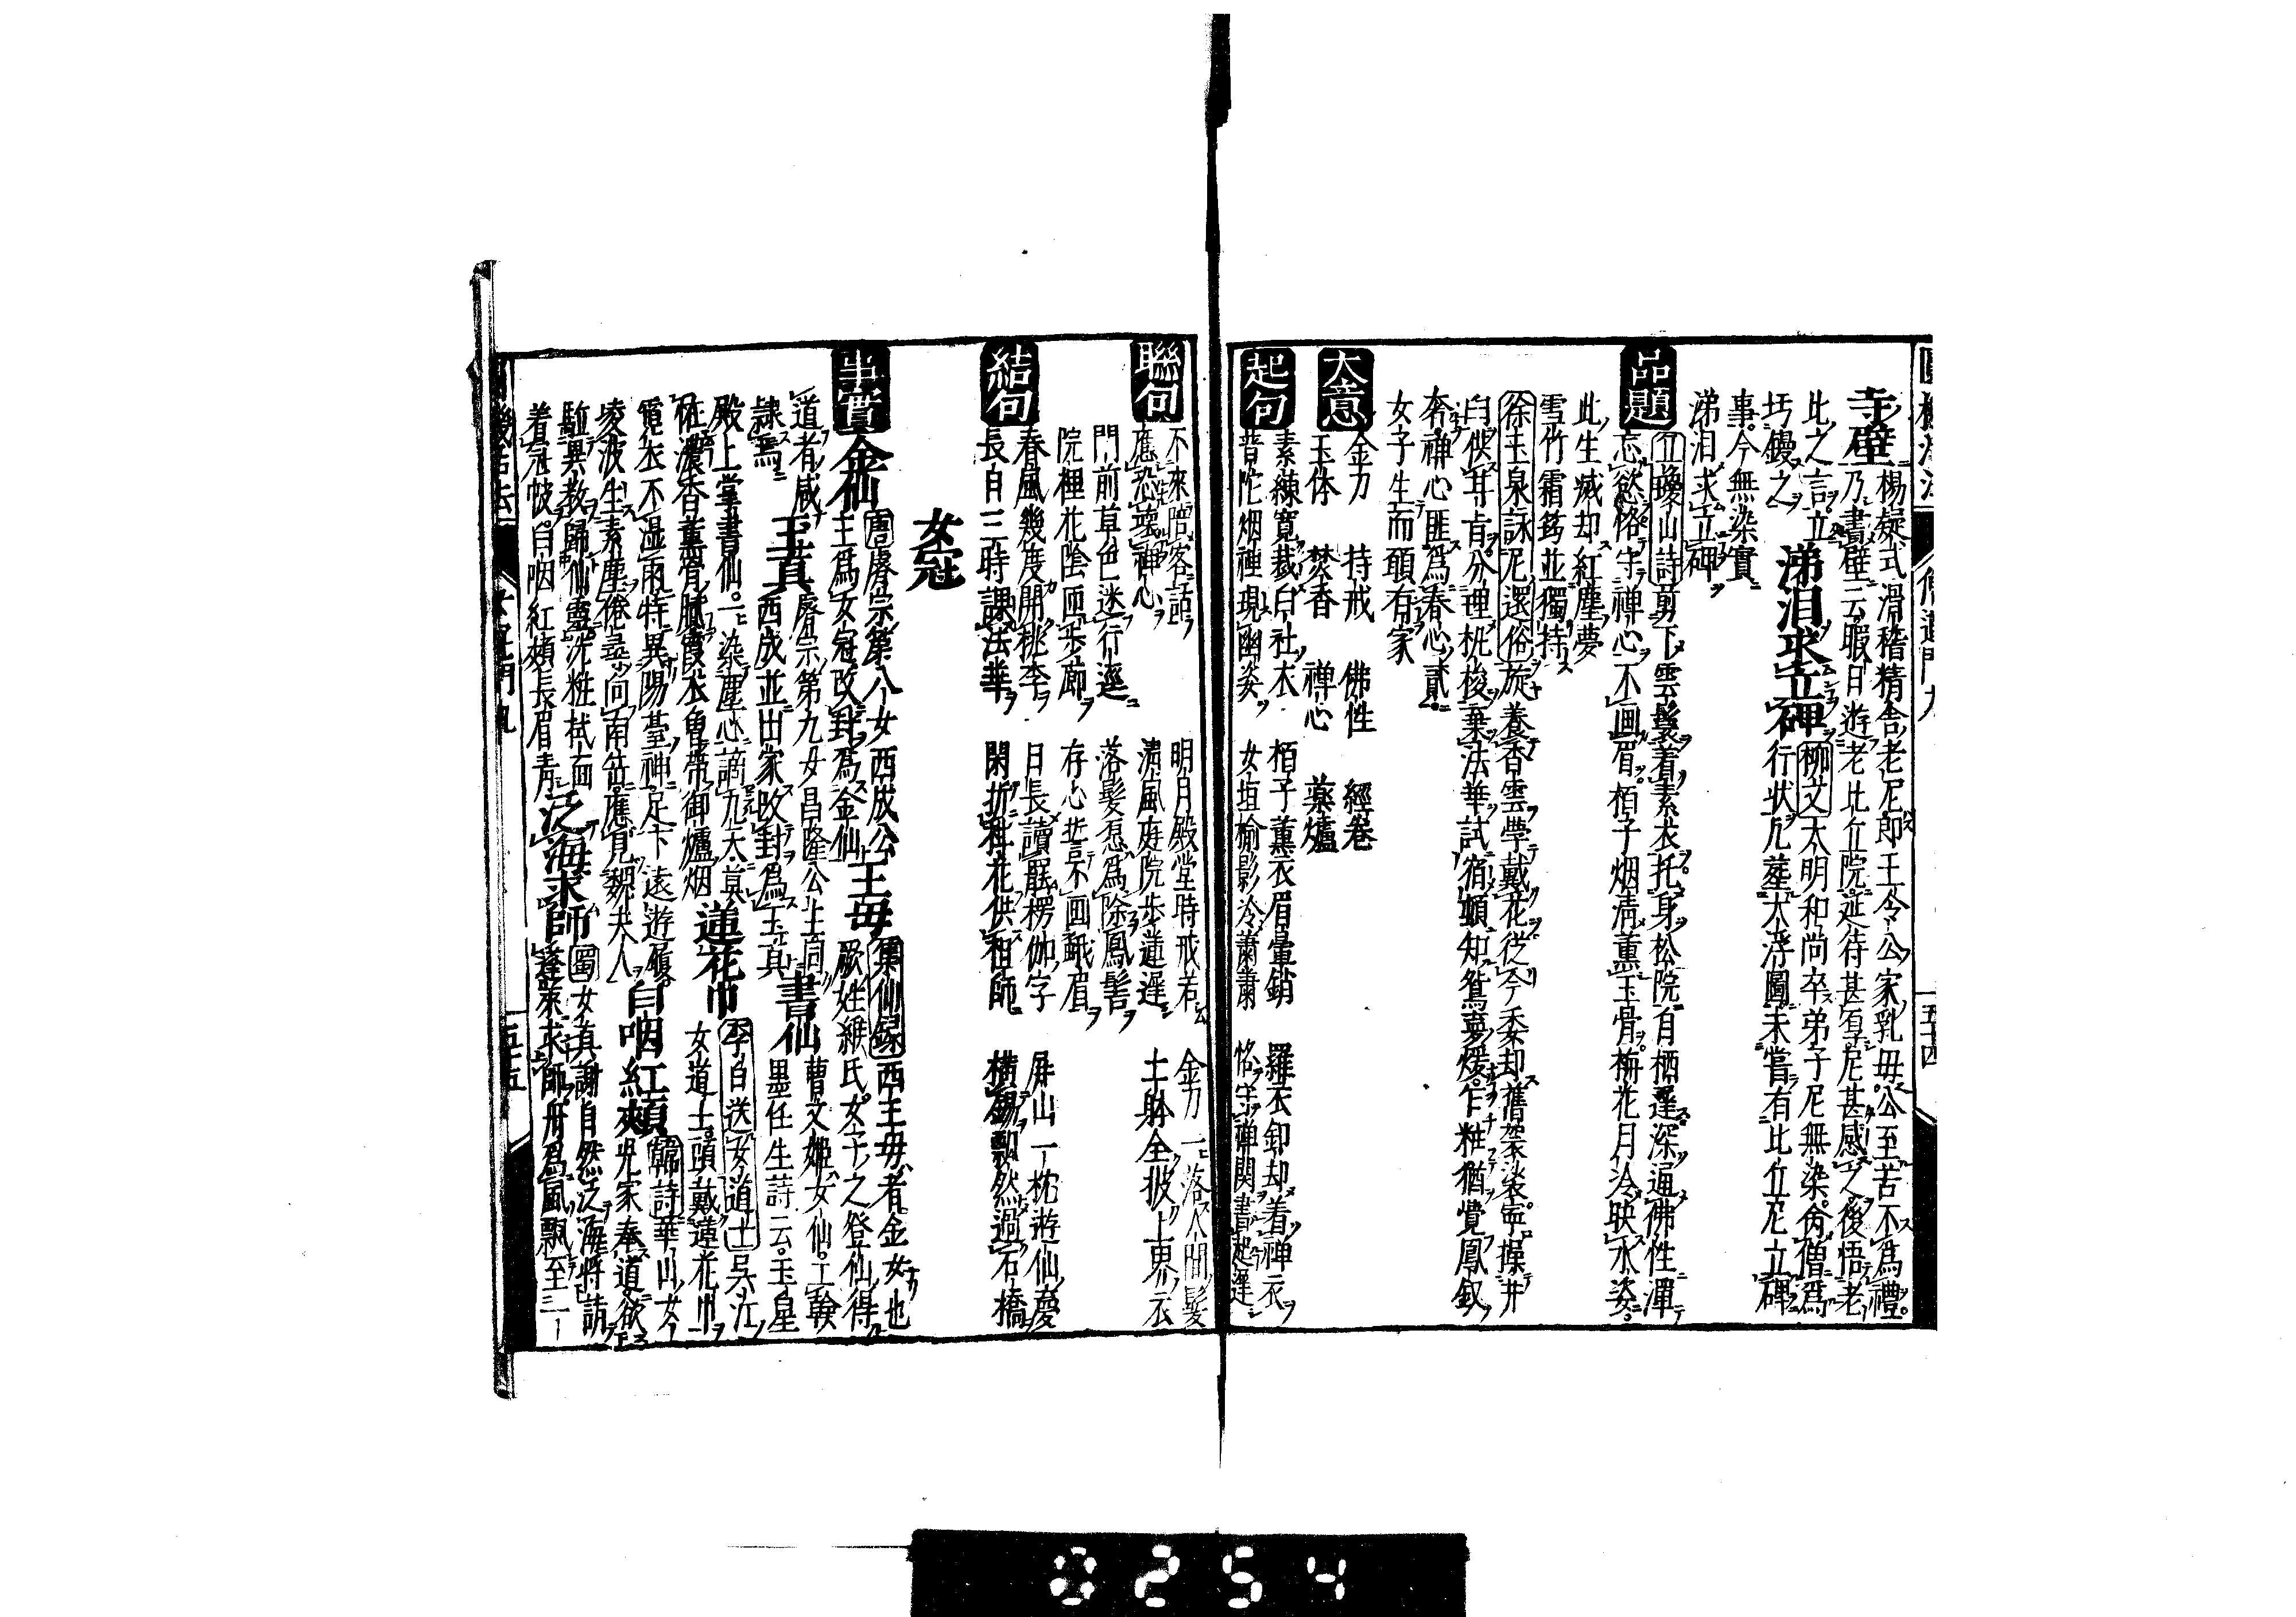 寺壁楊凝式滑稽精舍老尼即王令公家乳母公至苦不為禮
乃書壁云暇日遊老比丘院延待甚厚尼甚感之後悟老
比之言立
圬鏝之
涕泪求立碑柳文太明和尚卒弟子尼無染俞僧為
行狀凡葬大浮圖未嘗有比丘尼立碑
事今無染實
涕泪求立碑
品題
山詩剪下雲鬟着素衣托身松院自栖遲深通佛性渾
忘慾恪守禪心不画眉栢子烟清薰玉骨梅花月冷映水姿
此生滅却紅塵夢
雪竹霜筠並獨持
徐玉泉詠尼還俗旋養香雲學戴花從今委却舊袈裟寧操井
臼供耳盲分理枇梭棄法華試宿頓知鴛夢煖乍粧猶覺鳳釵
奢禪心匪為春心貳
女子生而頭有家
大意
金刀 持戒 佛性 經卷
玉体 焚香 禪心 藥爐
起句
素練寬裁白社衣 栢子薰衣眉暈銷 羅衣卸却着禪衣
普陀烟裡現幽姿 女垣榆影冷蕭肅 恪守禪関書起遲
聯句
不來陪客話 明月殿堂時戒若 金刀一落人間髮
應恐壊禪心 清風庭院步蓮遲 土躰全披上界衣
門前草色迷行逕 落髮忍為除鳳髻
院裡花陰匝步廊 存心誓不画蛾眉
結句
春風幾度開桃李 日長讀罷楞伽字 屏山一枕遊仙慶
長自三時課法華 閑折秏花供祖師 橫錫飄然過石橋
女冠
事實
金仙唐睿宗第八个女西成公
主為女冠改封為金仙
王母集仙録西王母者金女也
厥姓緱氏女子之登仙得
道者咸
隸焉
玉真睿宗第九女昌隆公主同
西成並出家改封為玉真
書仙曹文姬女仙工翰
墨任生詩云玉皇
殿上掌書仙一染塵心謫九天莫
怪濃香薰骨膩霞衣曾帶御爐烟
蓮花巾李白送女道士吳江
女道士頭戴蓮花巾
霓衣不湿雨特異陽臺神足下遠遊履
凌波生素塵俗尋向南岳應見魏夫人
白咽紅頰韓詩華山女
兒家奉道欲
驅異教歸仙靈洗粧拭面
着冠帔白咽紅頰長眉青
泛海求師蜀女真謝自然泛海將請
蓬萊求師舟為風飄至一